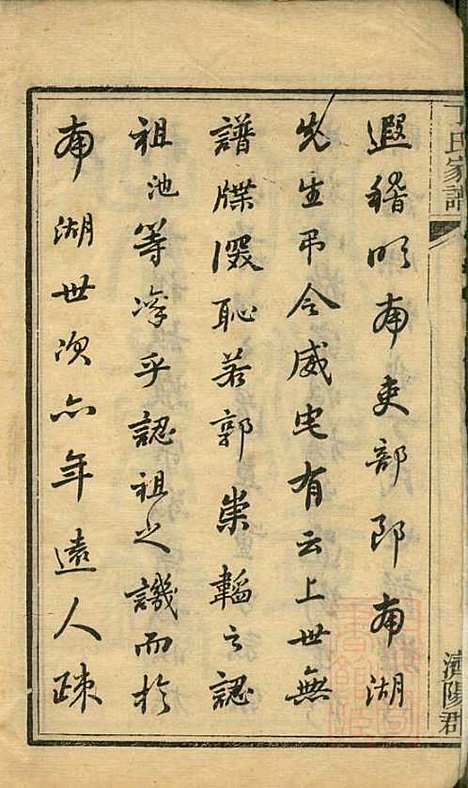 丁氏家譜
濟陽郡
遐稽明南吏部郎南湖
先生弔令威宅有云上世無
譜牒深恥若郭崇韜之認
祖池等淳乎認祖之譏而於
南湖世次亦年遠人疎